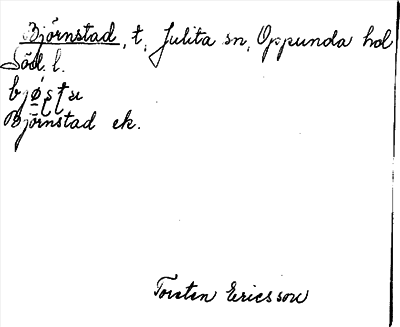 Björnstad, t, Julita sn, Oppunda hd
Söd. l.
Björnstad ek.
Torsten Ericsson